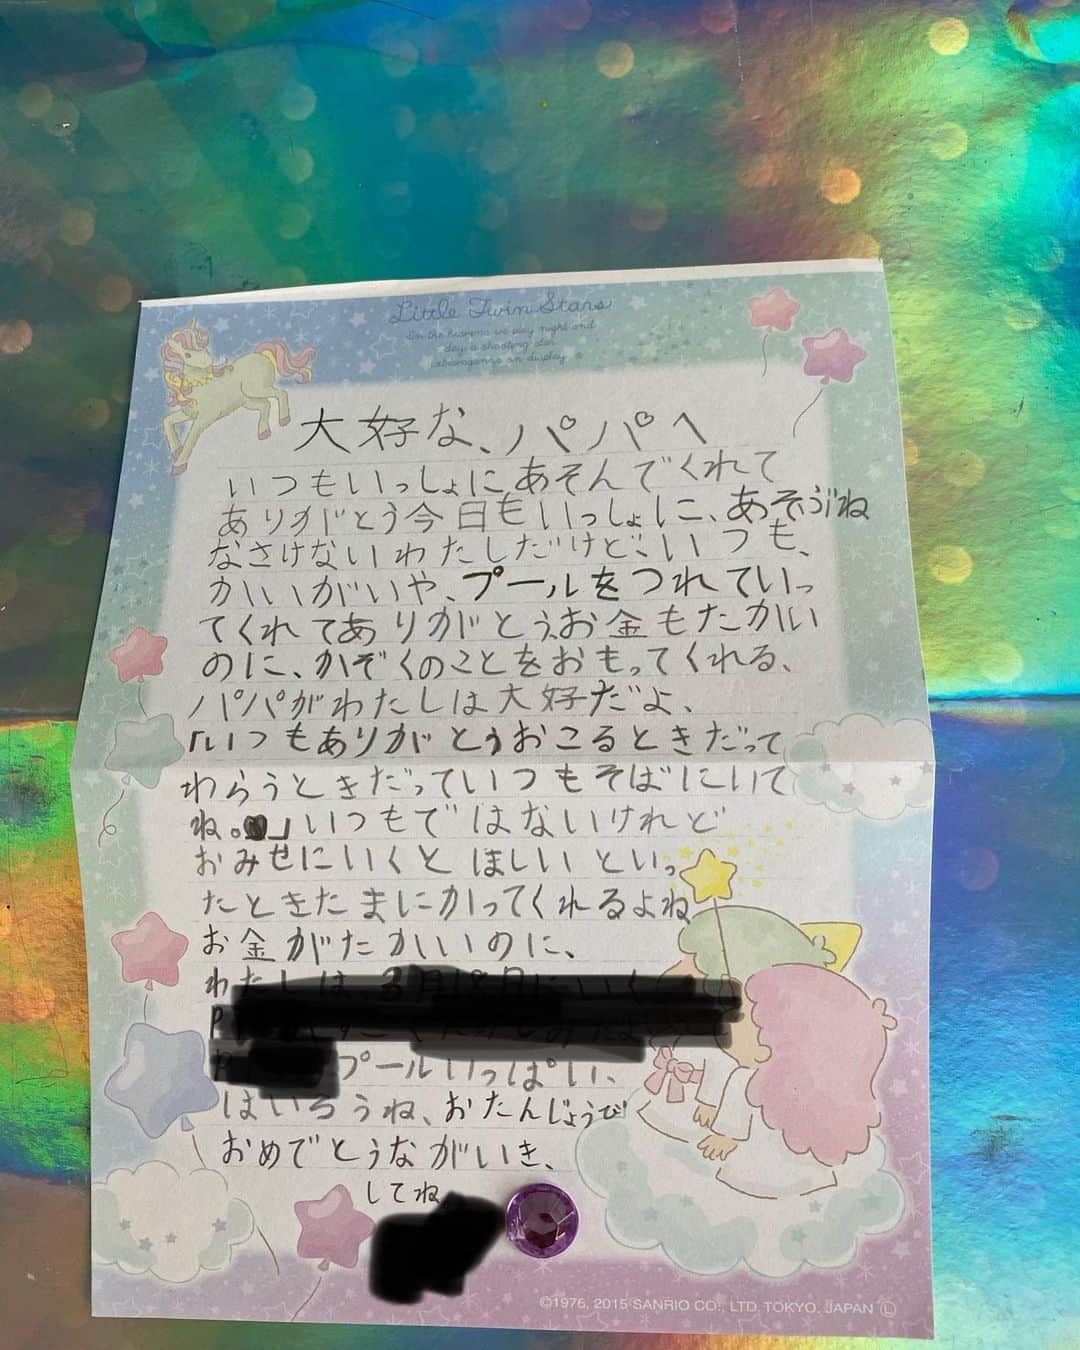 Little Twin Stars
In the heavens we play night and
day, a shooting star
extravaganza on display
大好な、パパへ
いつもいっしょにあそんでくれて
ありがとう今日もいっしょに、あそぶね
なさけないわたしだけど、いつも、
かいがいや、プールをつれていっ
てくれてありがとう、お金もたかい
のに、かぞくのことをおもってくれる、
パパがわたしは大好だよ、
「いつもありがとうおこるときだって
わらうときだっていつもそばにいて
ね。」いつもではないけれど
おみせにいくとほしいといっ
たときたまにかってくれるよね
お金がたかいのに、
わたしは、3月18日にいく
P
P プールいっぱい、
はいろうね、おたんじょうび
おめでとうながいき、
してね
©1976, 2015 SANRIO CO., LTD. TOKYO, JAPAN Ⓛ